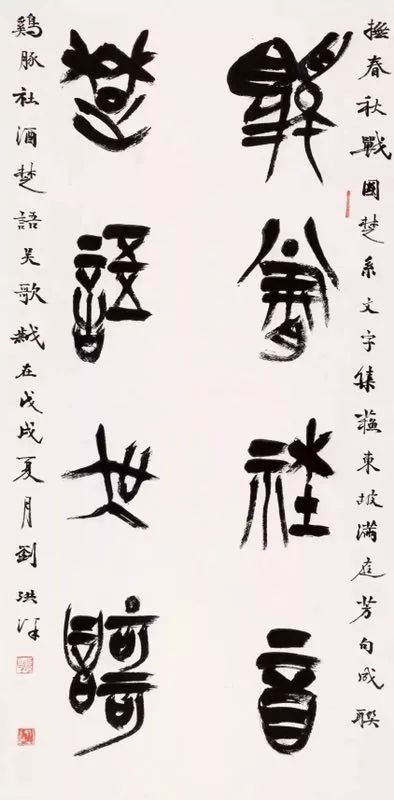 摭春秋戰國楚系文字集蘇東坡滿庭芳句成聯
鷄豚社酒
楚語吴歌
鷄豚社酒楚語吴歌歲在戊戌夏月劉洪洋